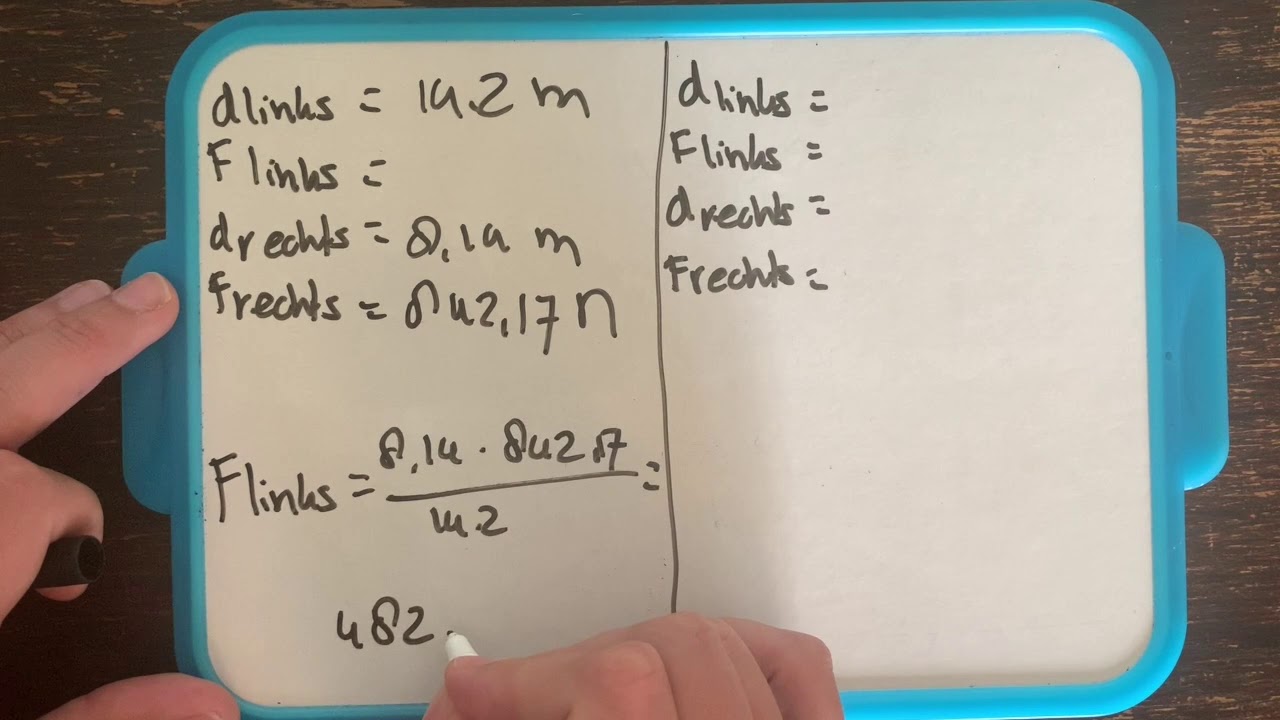 dlinks = 14.2 m
Flinks =
drechts = 8,14 m
Frechts = 842,17 N
8,14 · 842.17
Flinks = =
14.2
482.
dlinks =
Flinks =
drechts =
Frechts =